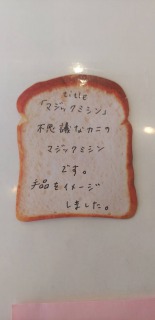 title
「マジックミシン」
不思議なカニの
マジックミシン
です。
手品をイメージ
しました。